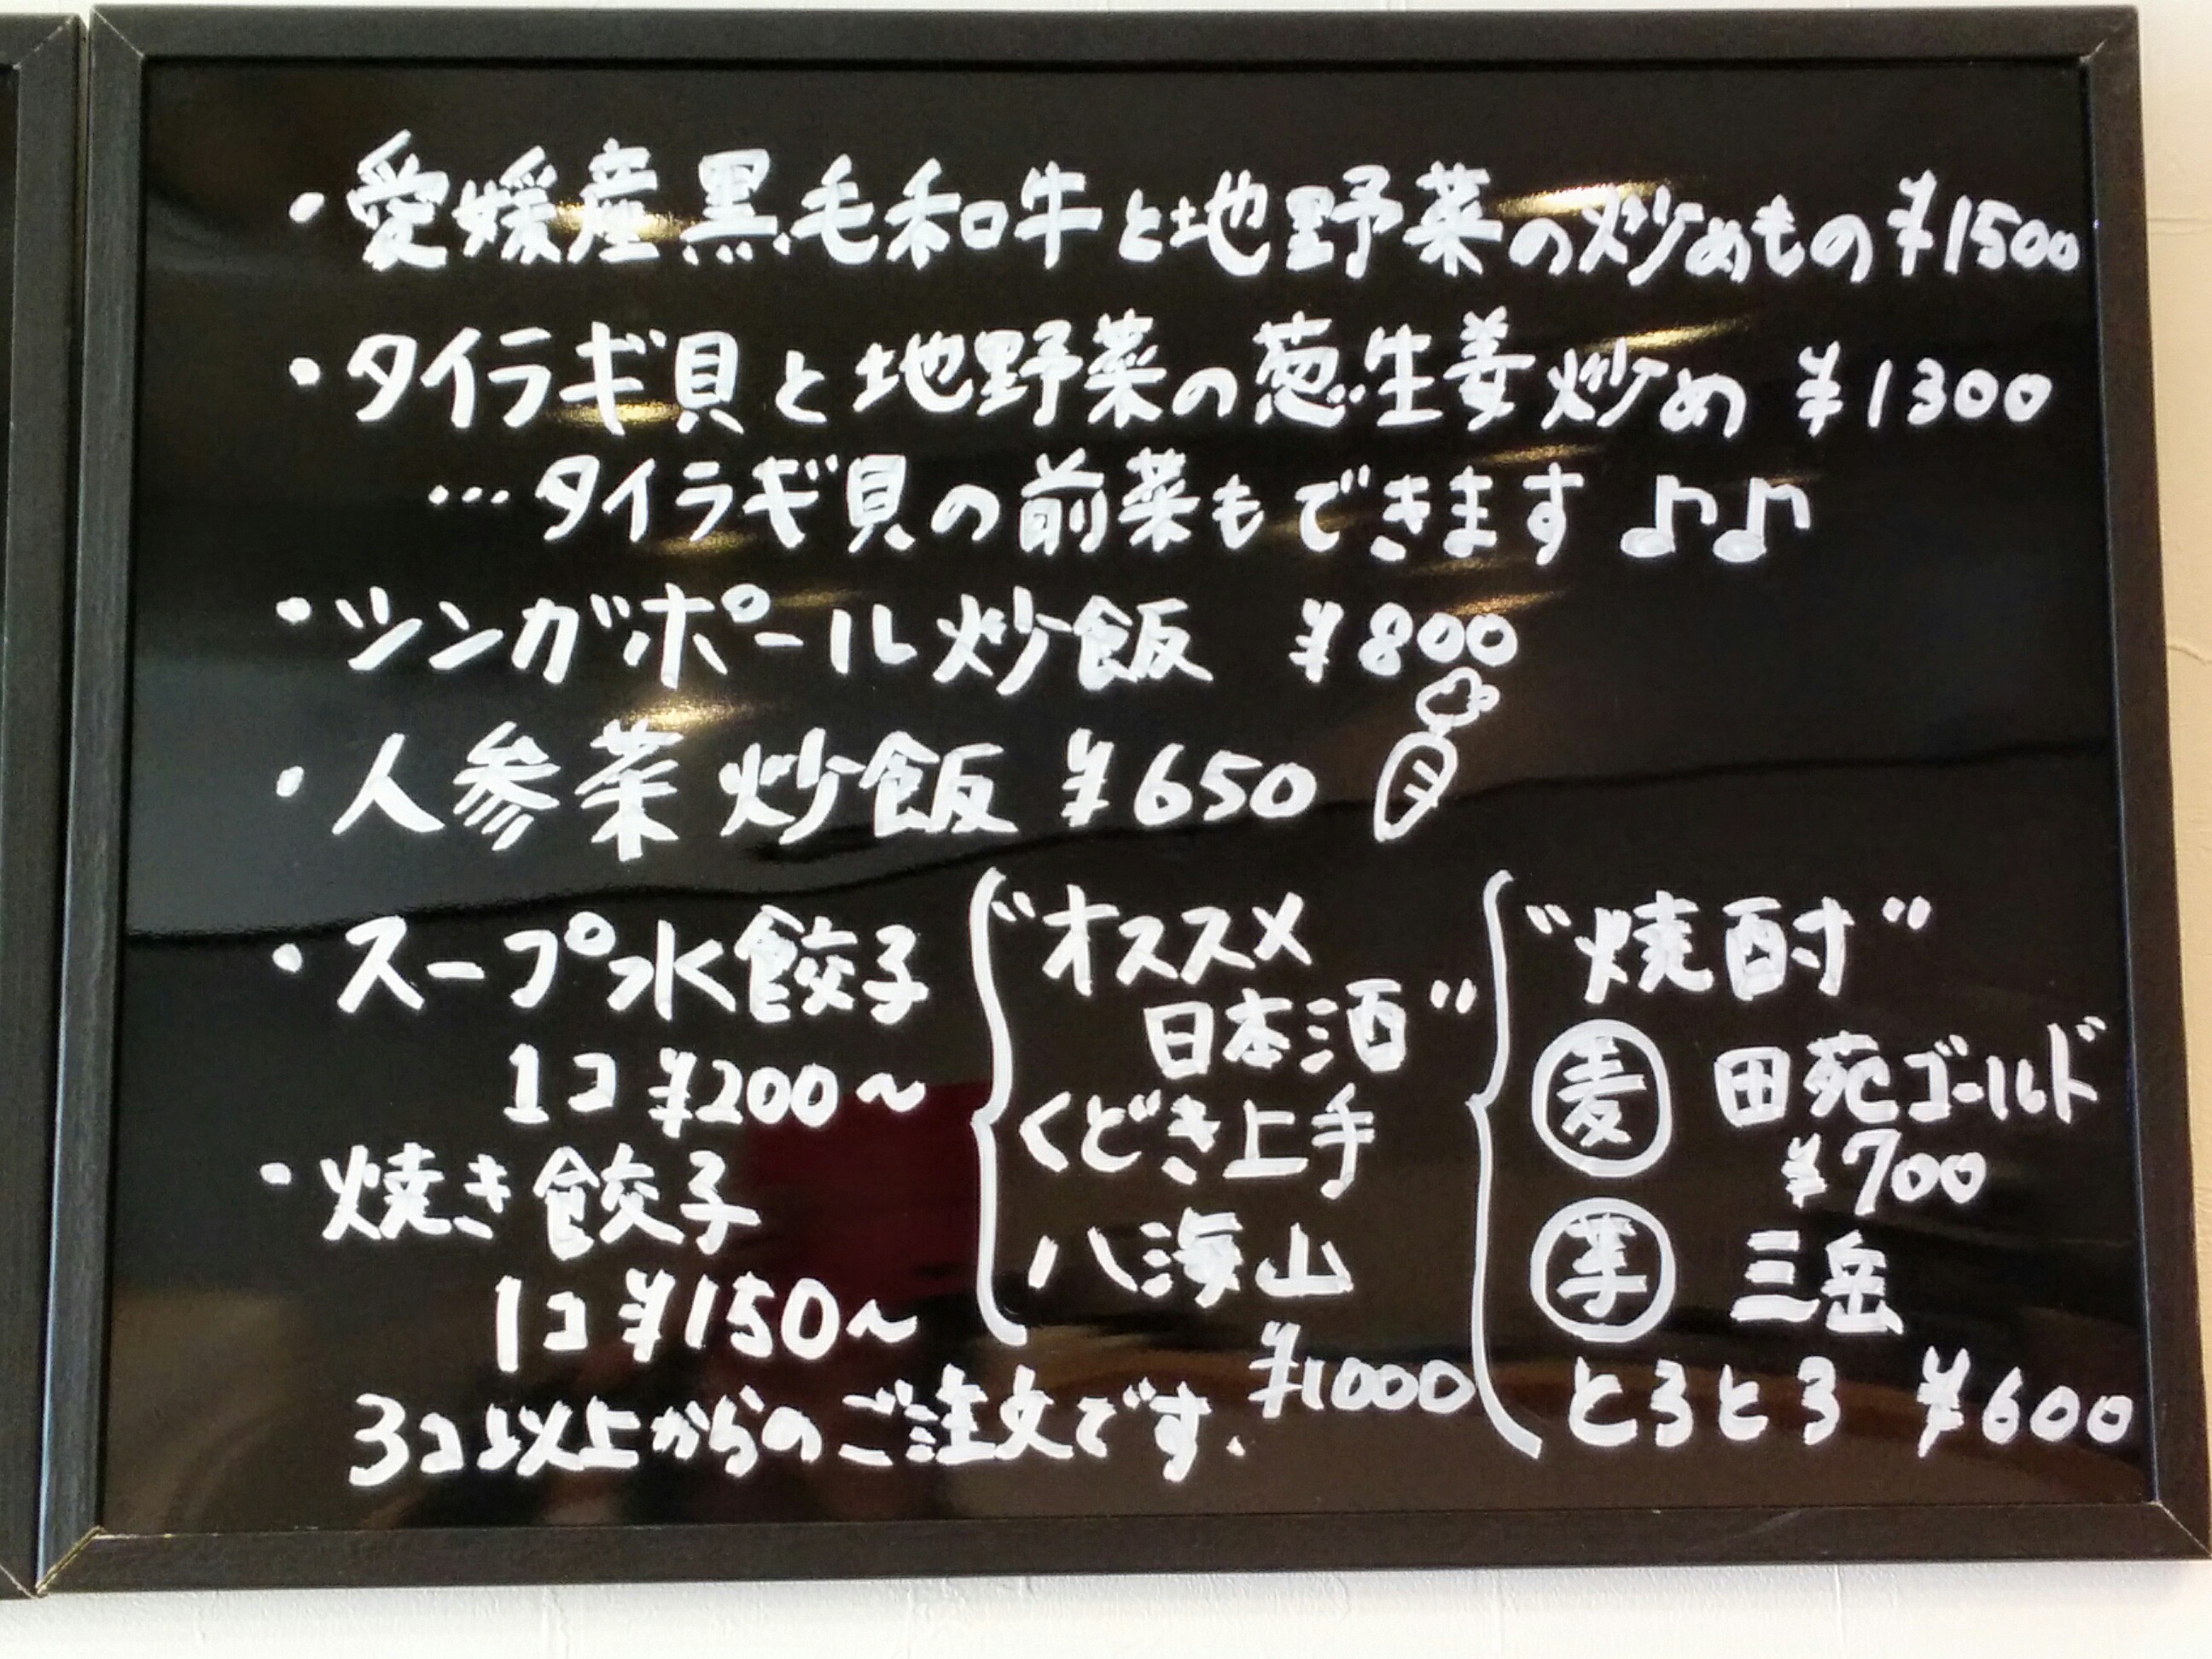 ・愛媛産黒毛和牛と地野菜の炒めもの ¥1500
・タイラギ貝と地野菜の葱生姜炒め ¥1300
…タイラギ貝の前菜もできます♪♪
・シンガポール炒飯 ¥800
・人参菜炒飯 ¥650
・スープ水餃子
1コ ¥200〜
・焼き餃子
1コ ¥150〜
3コ以上からのご注文です.
"オススメ
日本酒"
くどき上手
八海山
¥1000
"焼酎"
麦 田苑ゴールド
¥700
芋 三岳
とろとろ ¥600